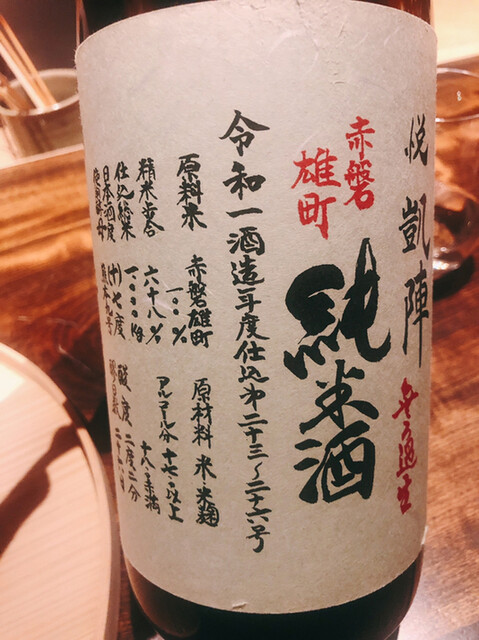 悦凱陣 無ろ過生
赤磐
雄町
純米酒
令和一酒造年度仕込第二十三～二十六号
原料米 赤磐雄町
一〇〇%
原材料 米・米麹
精米歩合 六十八%
アルコール分 十七以上
十八未満
仕込総米 一、〇〇〇kg
日本酒度 (+)七度 酸度 二度二分
熊本九号